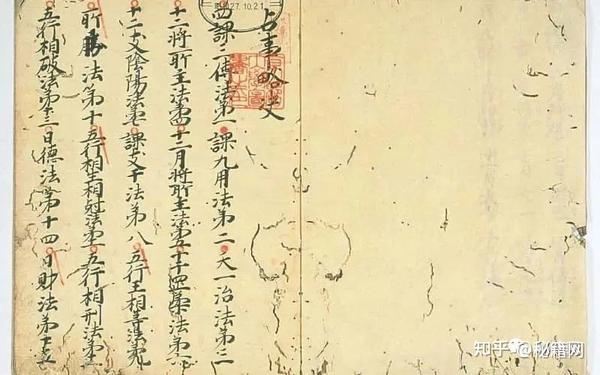 占事略决
四課三傳法第一 課九用法第二 天一治法第三
十二将所主法第四 十二月将所主法第五 十干剛柔法第六
十二支陰陽法第七 課支干法第八 五行王相等法第九
所勝法第十 五行相生相尅法第十一 五行相刑法第十二
五行相破法第十三 日德法第十四 日財法第十五
27.10.21
知乎 @秘籍网